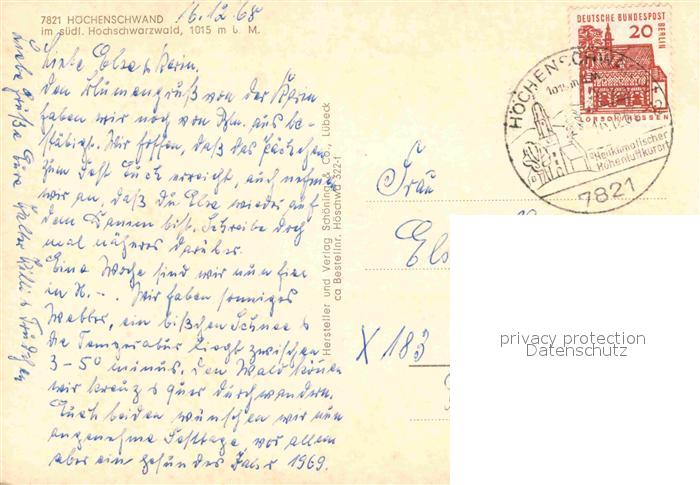 16.12.68
7821 HÖCHENSCHWAND
im südl. Hochschwarzwald, 1015 m ü. M.
Liebe Else & Karin.
Den Blumengruß von der
haben wir noch von Rhn. aus be-
stätigt. Wir hoffen, daß das Päckchen
zum Fest Euch erreicht, auch nehmen
wir an, daß Du Else wieder auf
dem Damm bist. Schreibe doch
mal näheres darüber.
Eine Woche sind wir nun hier
in H. Wir haben sonniges
Wetter, ein bißchen Schnee &
die Temperatur liegt zwischen
3-5° minus. Den Wald können
wir kreuz & quer durchwandern.
Euch beiden wünschen wir nun
angenehme Festtage, vor allem
aber ein gesundes Jahr 1969.
Liebe Grüße Eure Walter Willi & Trudchen
Hersteller und Verlag Schöning & Co., Lübeck
ca Bestellnr. Höschwa 322-1
DEUTSCHE BUNDESPOST
BERLIN
20
LORSCH/HESSEN
HÖCHENSCHWAND
1015 m ü.M.
Heilklimatischer
Höhenluftkurort
7821
Frau
Els
X 183
privacy protection
Datenschutz